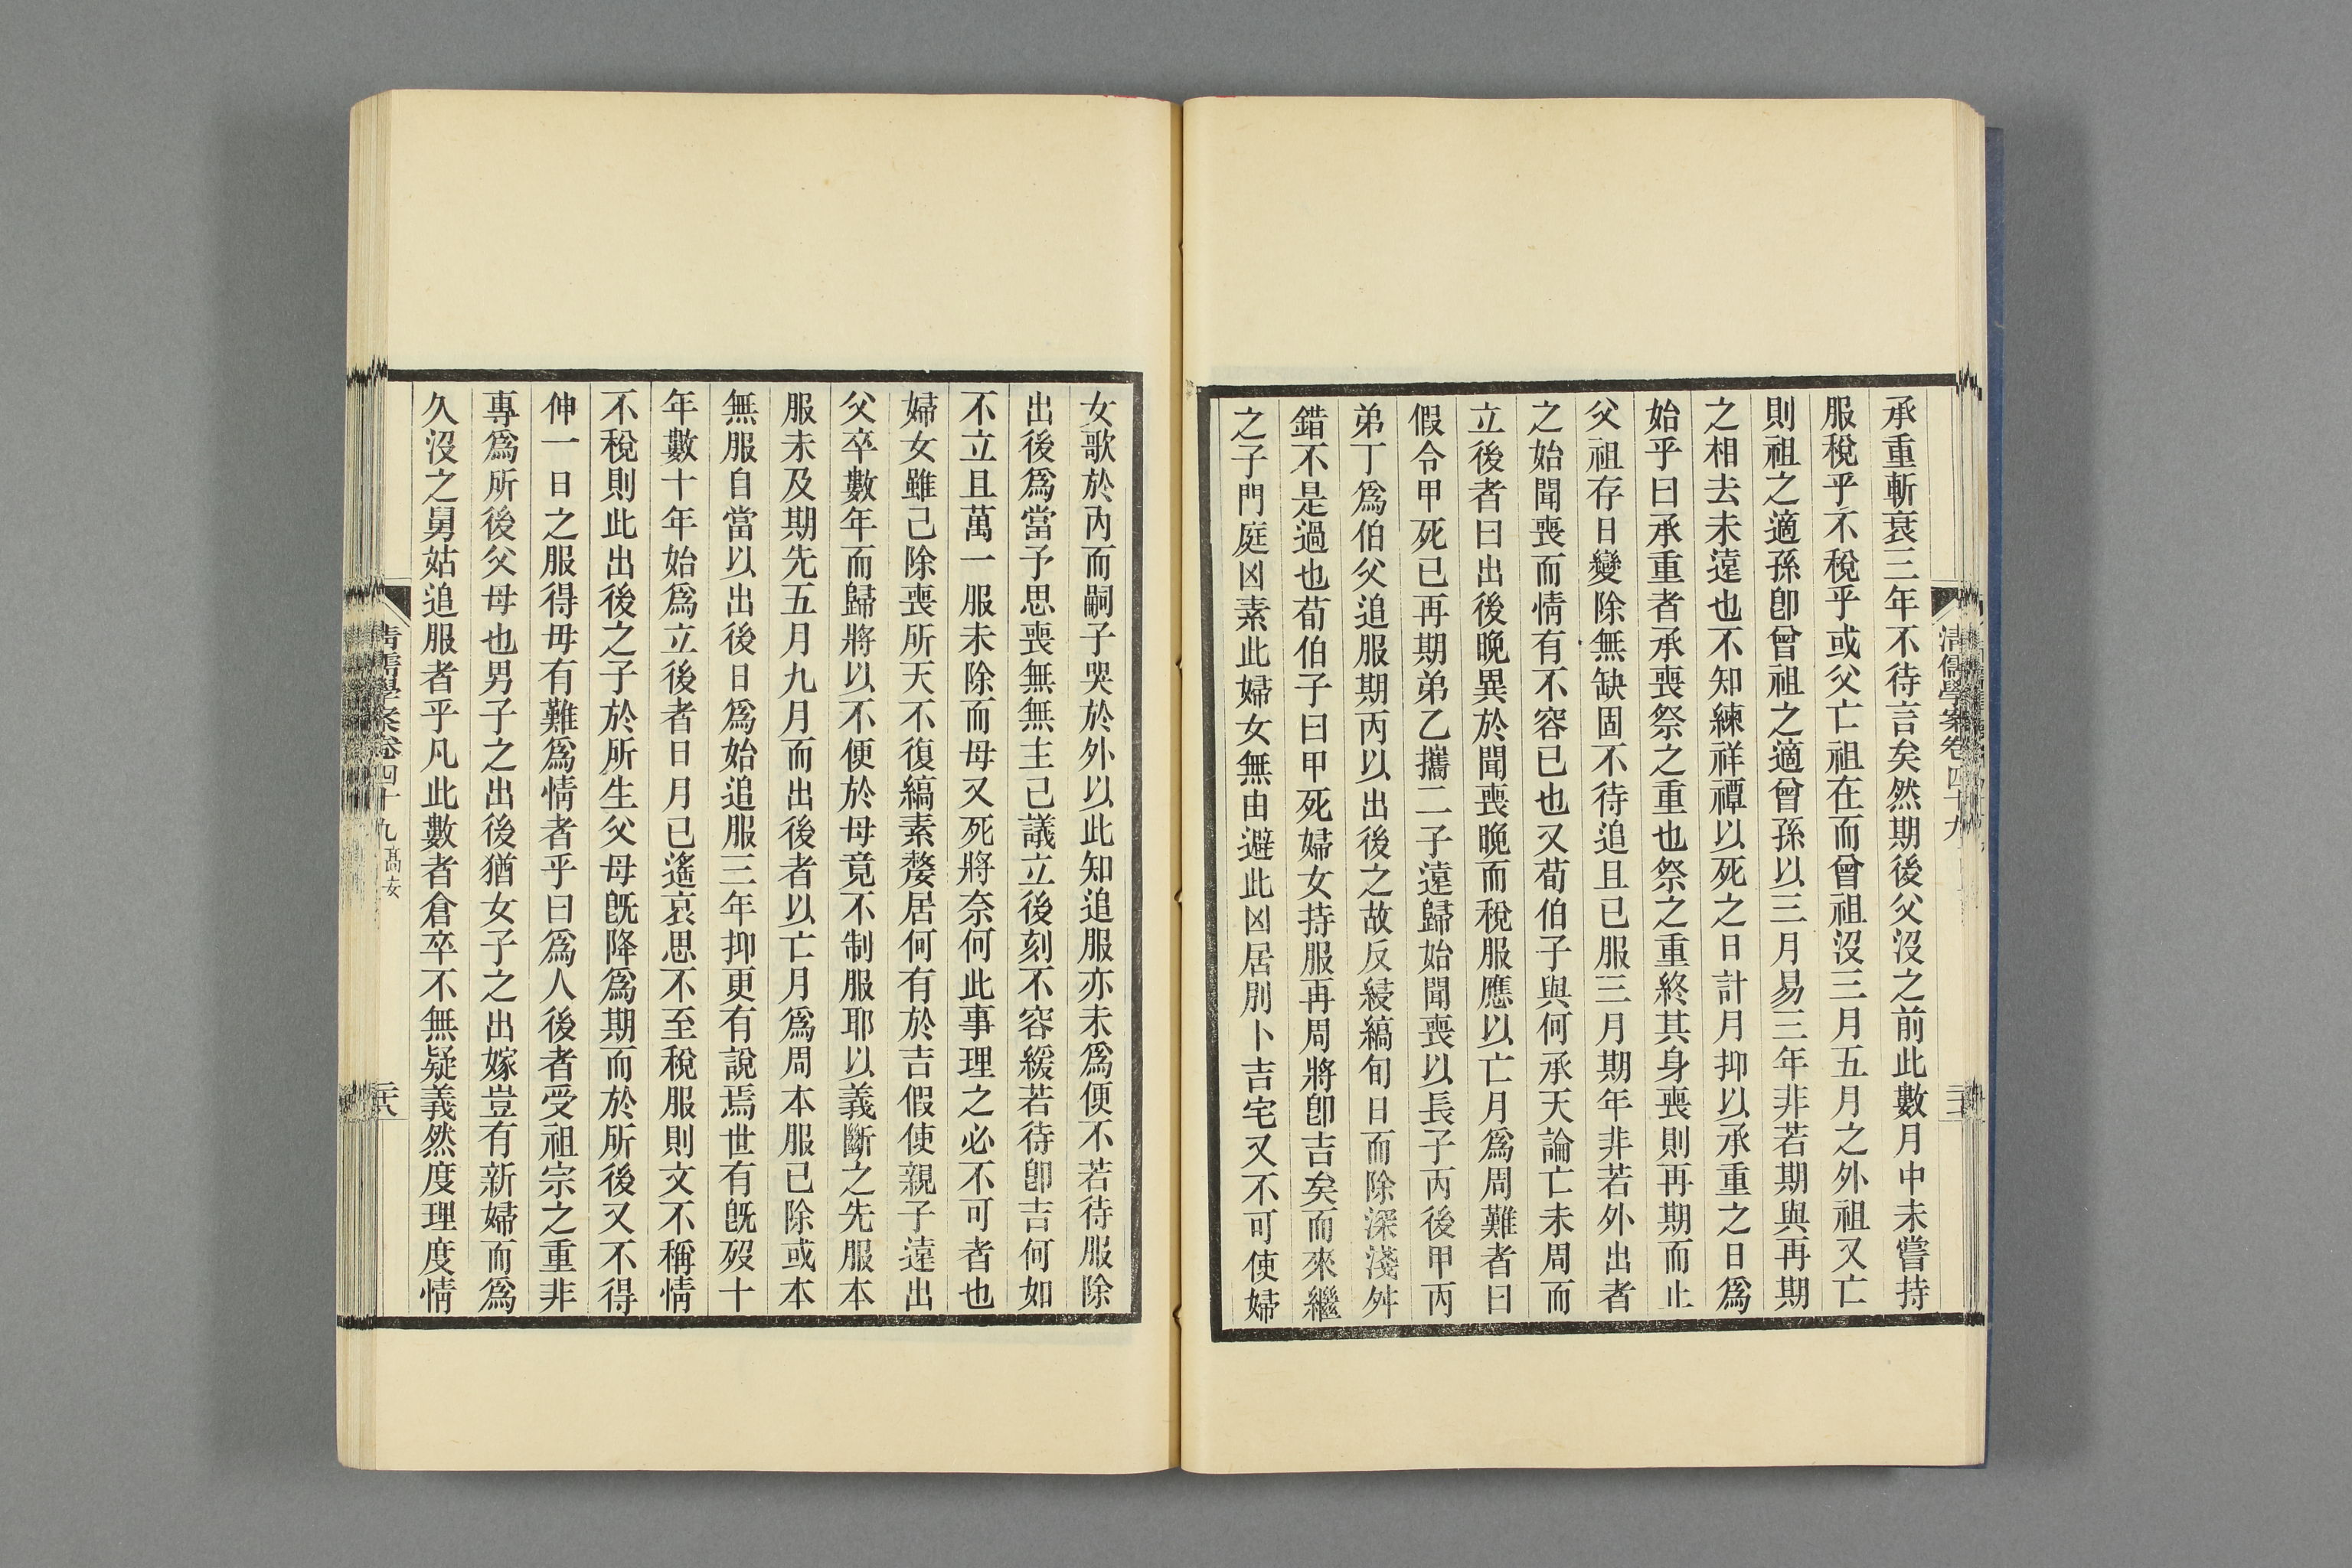 承重斬衰三年不待言矣然期後父沒之前此數月中未嘗持
服稅乎不稅乎或父亡祖在而曾祖沒三月五月之外祖又亡
則祖之適孫卽曾祖之適曾孫以三月易三年非若期與再期
之相去未遠也不知練祥禫以死之日計月抑以承重之日爲
始乎曰承重者承喪祭之重也祭之重終其身喪則再期而止
父祖存日變除無缺固不待追且已服三月期年非若外出者
之始聞喪而情有不容已也又荀伯子與何承天論亡未周而
立後者曰出後晚異於聞喪晚而稅服應以亡月爲周難者曰
假令甲死已再期弟乙攜二子遠歸始聞喪以長子丙後甲丙
弟丁爲伯父追服期丙以出後之故反綅縞旬日而除深淺舛
錯不是過也荀伯子曰甲死婦女持服再周將卽吉矣而來繼
之子門庭凶素此婦女無由避此凶居別卜吉宅又不可使婦
清儒學案卷四十九
女歌於內而嗣子哭於外以此知追服亦未爲便不若待服除
出後爲當予思喪無無主己議立後刻不容緩若待卽吉何如
不立且萬一服未除而母又死將奈何此事理之必不可者也
婦女雖已除喪所天不復縞素嫠居何有於吉假使親子遠出
父卒數年而歸將以不便於母竟不制服耶以義斷之先服本
服未及期先五月九月而出後者以亡月爲周本服已除或本
無服自當以出後日爲始追服三年抑更有說焉世有旣歿十
年數十年始爲立後者日月已遙哀思不至稅服則文不稱情
不稅則此出後之子於所生父母旣降爲期而於所後又不得
伸一日之服得毋有難爲情者乎曰爲人後者受祖宗之重非
專爲所後父母也男子之出後猶女子之出嫁豈有新婦而爲
久沒之舅姑追服者乎凡此數者倉卒不無疑義然度理度情
清儒學案卷四十九 高安 二六